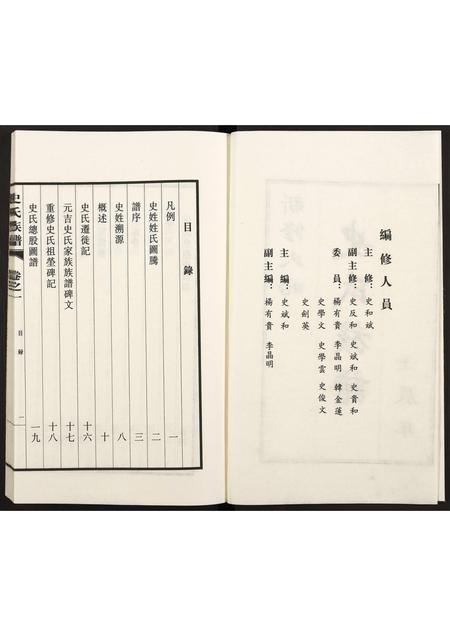 編修人員
主 修：史和斌
副主修：史反和 史斌和 史貴和
委 員：楊有貴 李晶明 韓金蓮
史學文 史學雲 史俊文
史劍英
主 編：史斌和
副主編：楊有貴 李晶明
目錄
凡例 一
史姓姓氏圖騰 二
譜序 三
史姓溯源 八
概述 十
史氏遷徙記 十六
元吉史氏家族族譜碑文 十七
重修史氏祖塋碑記 十八
史氏總股圖譜 一九
史氏族譜 卷之一 目録 一